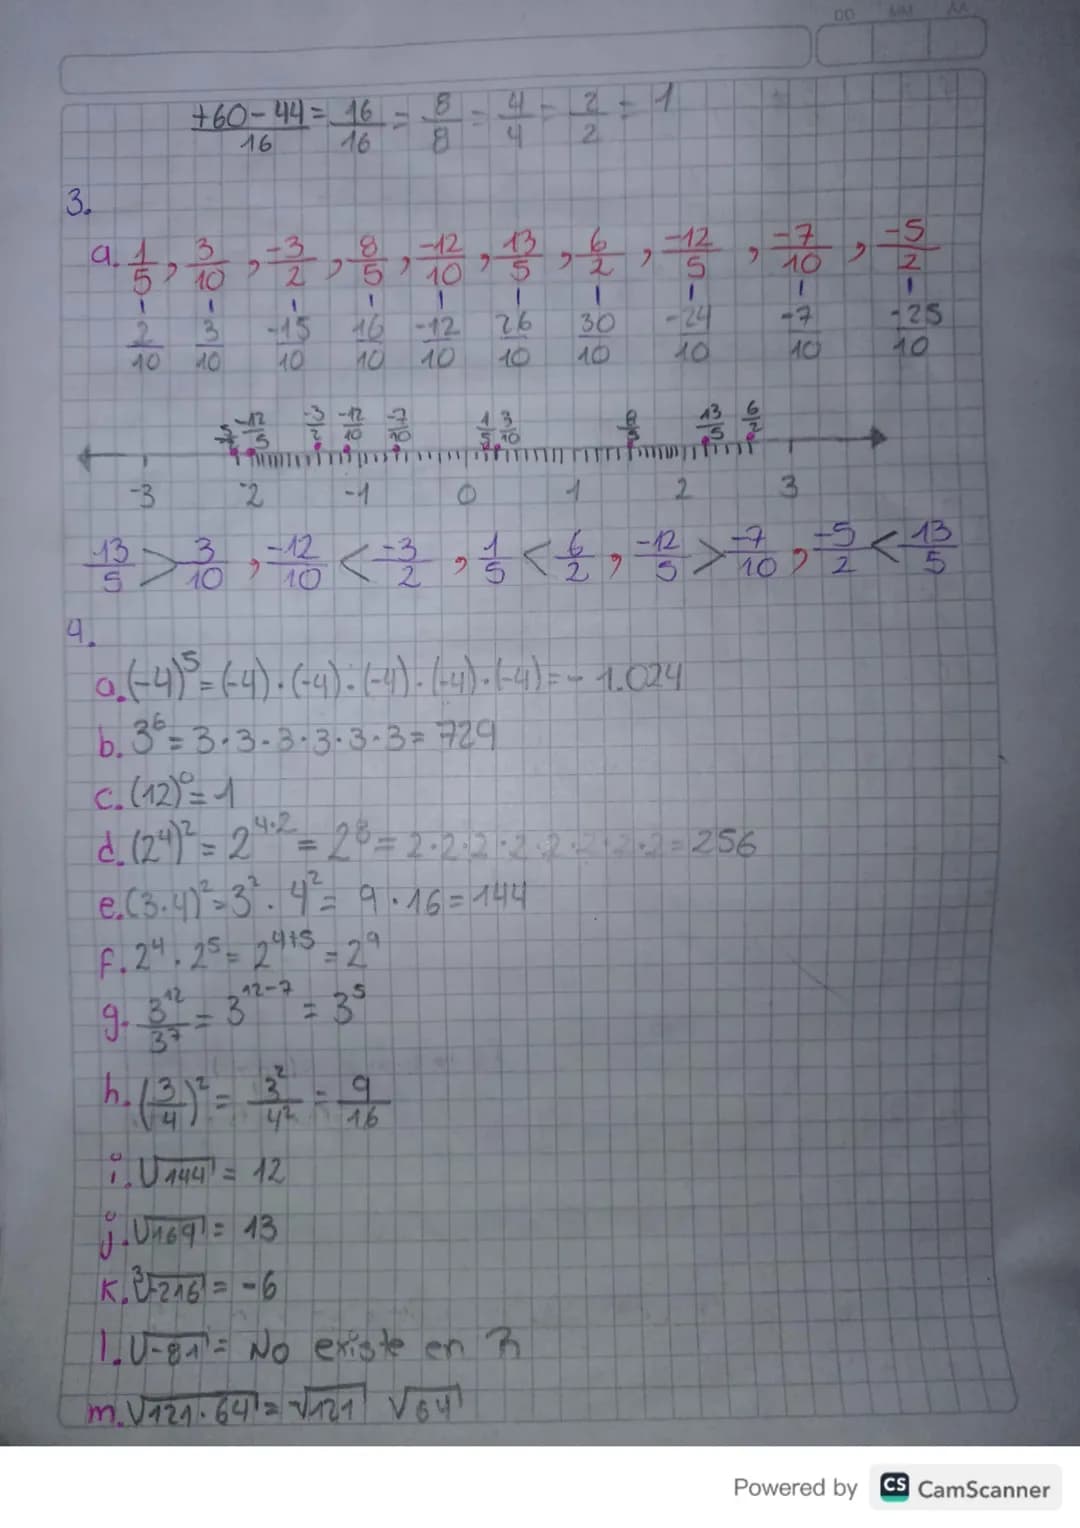 DD MM AA
+60-44/16 = 16/16 = 8/8 = 4/4 = 2/2 = 1
3.
a. 1/5, 3/10, -3/2, 8/5, -12/10, 13/5, 6/2, -12/5, -7/10, -5/2
2/10 3/10 -15/10 16/10 -12/10 26/10 30/10 -24/10 -7/10 -25/10
-12/5 -3/2 -12/10 -7/10 1/5 3/10 8/5 13/5 6/2
-3 -2 -1 0 1 2 3
13/5 > 3/10, -12/10 < -3/2, 1/5 < 6/2, -12/5 > -7/10, -5/2 < 13/5
4.
a. (-4)⁵ = (-4)·(-4)·(-4)·(-4)·(-4) = - 1.024
b. 3⁶ = 3·3·3·3·3·3 = 729
c. (12)⁰ = 1
d. (2⁴)² = 2⁴·² = 2⁸ = 2·2·2·2·2·2·2·2 = 256
e. (3·4)² = 3² · 4² = 9 · 16 = 144
f. 2⁴ · 2⁵ = 2⁴⁺⁵ = 2⁹
g. 3¹²/3⁷ = 3¹²⁻⁷ = 3⁵
h. (3/4)² = 3²/4² = 9/16
i. √144 = 12
j. √169 = 13
k. ³√-216 = -6
l. √-81 = No existe en
m. √121·64 = √121 √64
Powered by CS CamScanner